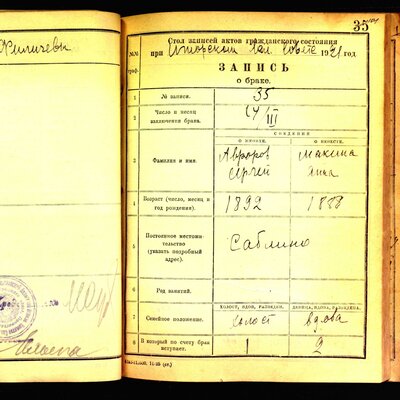 35
Стол записей актов гражданского состояния
при Ижорском вол. совете 1921 год.
ЗАПИСЬ
о браке.
№№ граф.
1 № записи. 35
2 Число и месяц заключения брака. 14/III
СВЕДЕНИЯ
О ЖЕНИХЕ. О НЕВЕСТЕ.
3 Фамилия и имя. Авроров Сергей Макина Анна
4 Возраст (число, месяц и год рождения). 1892 1888
5 Постоянное местожительство (указать подробный адрес). Саблино
6 Род занятий.
ХОЛОСТ, ВДОВ, РАЗВЕДЕН. ДЕВИЦА, ВДОВА, РАЗВЕДЕНА.
7 Семейное положение. холост вдова
8 В который по счету брак вступает. 1 2